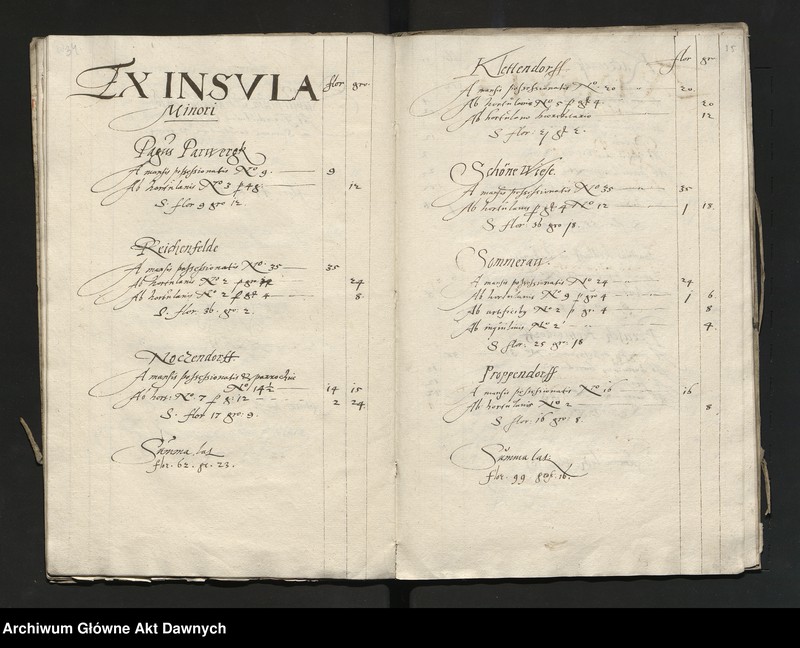 34
EX INSVLA flor gro.
Minori
Pagus Parwergk
A mansis possessionatis Nro 9. 9
Ab hortulanis Nro 3 p 4 g. 12
S. flor 9 gro 12
Reichenfelde
A mansis possessionatis Nro. 35 35
Ab hortulanis No 2 p gro 24
Ab hortulanis No 2 p gr 4 8.
S. flor. 36. gr. 2.
Noczendorff
A mansis possessionatis & parrochi
Nro 14½ 14 15
Ab hort: No. 7 p g: 12 2 24
S. flor 17 gro 9.
Summa lat
flor. 62. gr. 23.
35
Klettendorff flor gr
A mansis possessionatis Nro 20 20
Ab hortulanis No 5 p gr 4. 20
Ab hortulano 12
S flor. 21 gr 2.
Schöne Wiese
A mansis possessionatis Nro 35 35
Ab hortulanis p gr 4 Nro 12 1 18
S flor. 36 gro 18
Sommeraw.
A mansis possessionatis No 24 24
Ab hortulanis No 9 p gro 4 1 6
Ab artificibus No 2 p gr. 4 8
Ab inquilinis No 2 4.
S flor: 25 gr: 18
Proppendorff
A mansis possessionatis Nro 16 16
Ab hortulanis Nro 2 8
S flor. 16 gro 8.
Summa lat.
flor. 99 gros. 16.
Archiwum Główne Akt Dawnych